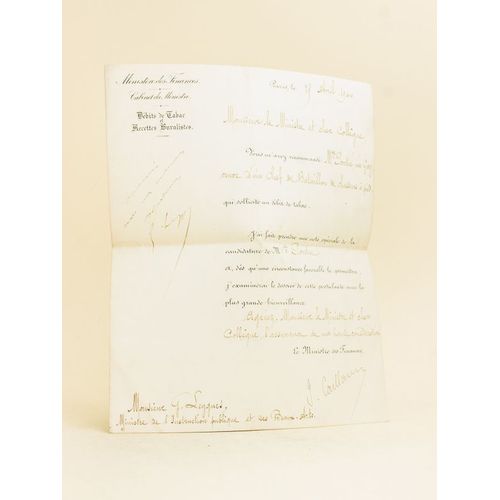 Ministère des Finances.
Cabinet du Ministre.
Débits de Tabac
et
Recettes Buralistes.
Paris, le 27 Avril 1900
Monsieur le Ministre et cher Collègue,
Vous m'avez recommandé Mme
veuve d'un Chef de Bataillon de chasseurs à pied,
qui sollicite un débit de tabac.
J'ai fait prendre une note spéciale de la
candidature de Mme
et, dès qu'une circonstance favorable le permettra,
j'examinerai le dossier de cette postulante avec la
plus grande bienveillance.
Agréez, Monsieur le Ministre et cher
Collègue, l'assurance de ma haute considération
Le Ministre des Finances,
J. Caillaux
Monsieur G. Leygues,
Ministre de l'Instruction publique et des Beaux-Arts.